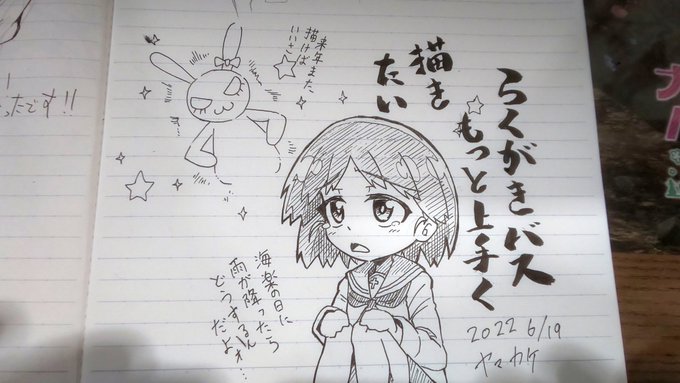 らくがきバス
もっと上手く
描き
たい
来年また、
描けば
いいさ
海楽の日に
雨が降ったら
どうするん
だよォ…
2022 6/19
ヤマカケ
ったです!!